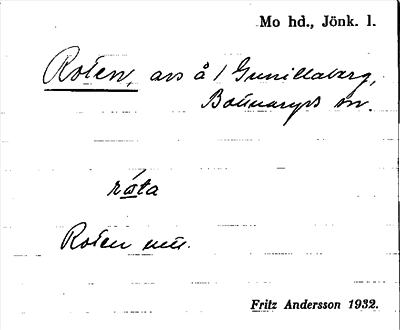 Mo hd., Jönk. l.
Roten, avs å / Gunillaberg,
Bottnaryds sn.
ráta
Roten utt.
Fritz Andersson 1932.